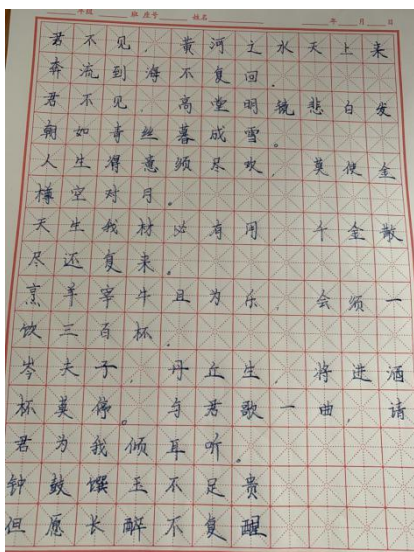 年级 班 座号 姓名 年 月 日
君不见，黄河之水天上来
奔流到海不复回。
君不见，高堂明镜悲白发
朝如青丝暮成雪。
人生得意须尽欢，莫使金
樽空对月。
天生我材必有用，千金散
尽还复来。
烹羊宰牛且为乐，会须一
饮三百杯。
岑夫子，丹丘生，将进酒
杯莫停。与君歌一曲，请
君为我倾耳听。
钟鼓馔玉不足贵
但愿长醉不复醒